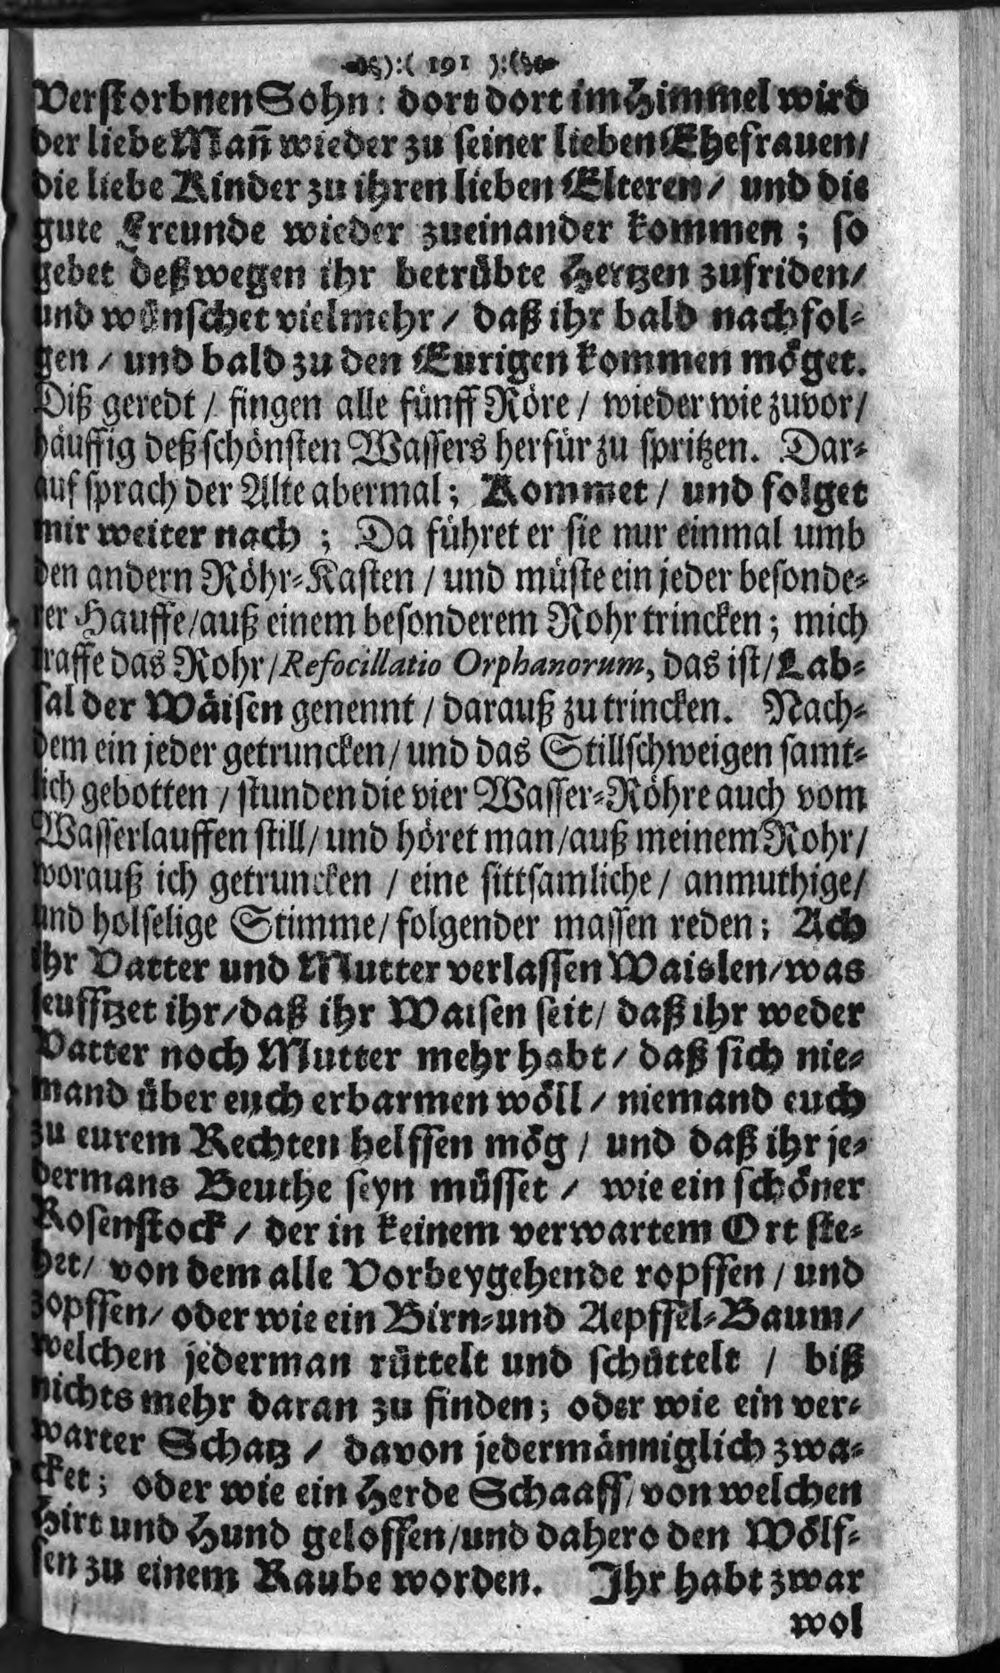 ):( 191 ):(
Verstorbnen Sohn: dort dort im Himmel wird
der liebe Mañ wieder zu seiner lieben Ehefrauen/
die liebe Kinder zu ihren lieben Elteren/ und die
gute Freunde wieder zueinander kommen; so
gebet deßwegen ihr betrübte Hertzen zufriden/
und wünschet vielmehr/ daß ihr bald nachfol-
gen/ und bald zu den Eurigen kommen möget.
Diß geredt/ fingen alle fünff Röre/ wieder wie zuvor/
häuffig deß schönsten Wassers herfür zu spritzen. Dar-
auf sprach der Alte abermal; Kommet/ und folget
mir weiter nach; Da führet er sie nur einmal umb
den andern Röhr-Kasten/ und müste ein jeder besonde-
rer Hauffe/auß einem besonderem Rohr trincken; mich
traffe das Rohr/Refocillatio Orphanorum, das ist/Lab-
sal der Wäisen genennt/ darauß zu trincken. Nach-
dem ein jeder getruncken/ und das Stillschweigen samt-
lich gebotten/ stunden die vier Wasser-Röhre auch vom
Wasserlauffen still/ und höret man/auß meinem Rohr/
worauß ich getruncken/ eine sittsamliche/ anmuthige/
und holselige Stimme/ folgender massen reden; Ach
ihr Vatter und Mutter verlassen Waislen/was
seufftzet ihr/daß ihr Waisen seit/ daß ihr weder
Vatter noch Mutter mehr habt/ daß sich nie-
mand über euch erbarmen wöll/ niemand euch
zu eurem Rechten helffen mög/ und daß ihr je-
dermans Beuthe seyn müsset/ wie ein schöner
Rosenstock/ der in keinem verwartem Ort ste-
het/ von dem alle Vorbeygehende ropffen/ und
zopffen/ oder wie ein Birn-und Aepffel-Baum/
welchen jederman rüttelt und schüttelt/ biß
nichts mehr daran zu finden; oder wie ein ver-
warter Schatz/ davon jedermänniglich zwa-
cket; oder wie ein Herde Schaaff/ von welchen
Hirt und Hund geloffen/und dahero den Wölf-
fen zu einem Raube worden. Ihr habt zwar
wol